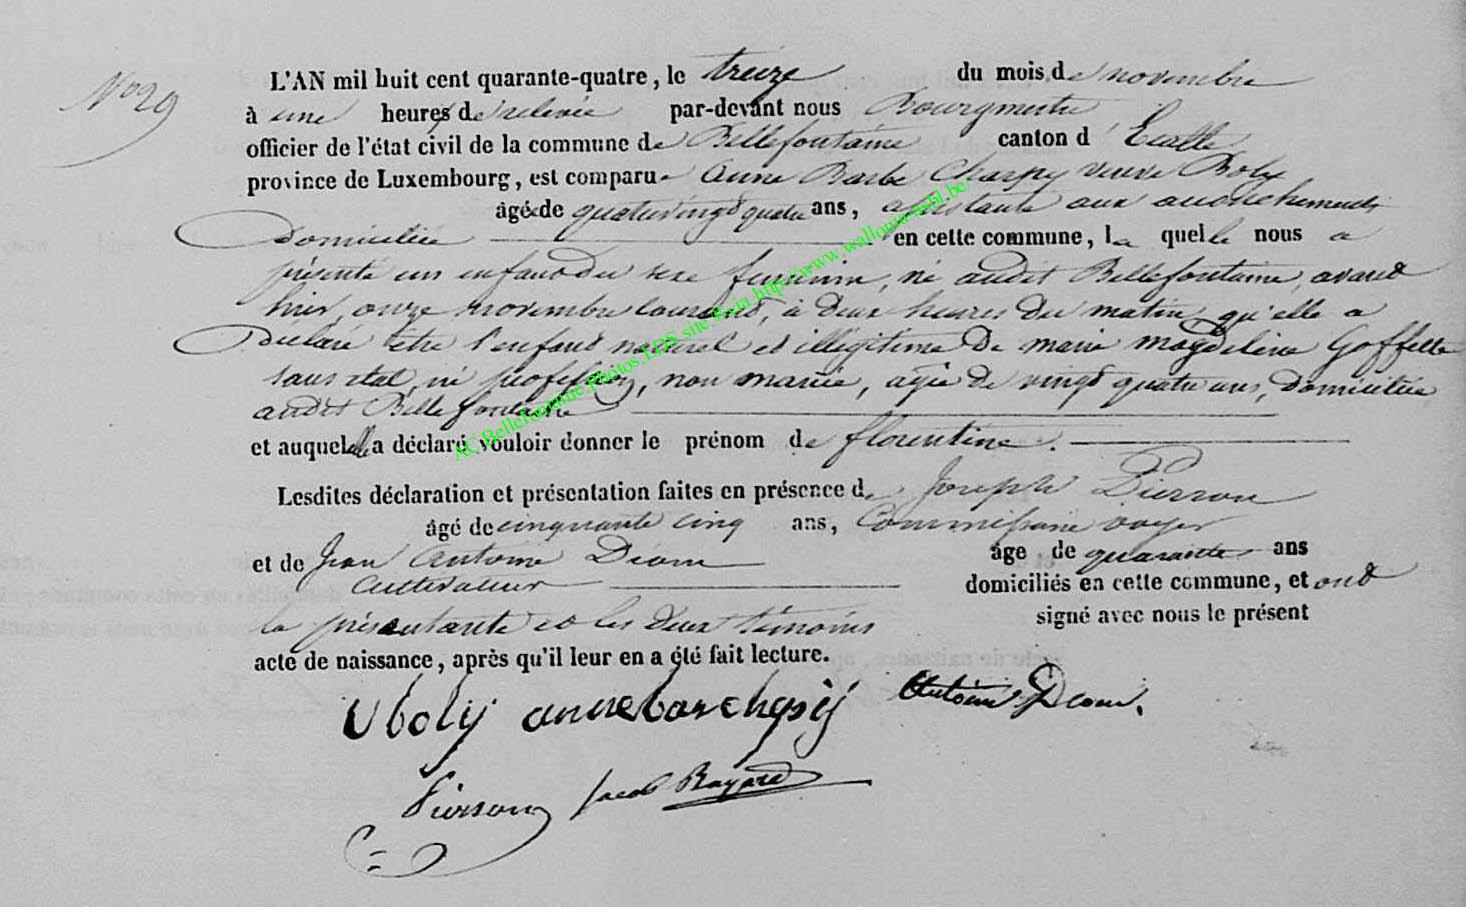 No 29
L'AN mil huit cent quarante-quatre, le treize du mois de novembre
à une heures de relevée par-devant nous Bourgmestre
officier de l'état civil de la commune de Bellefontaine canton d'Etalle
province de Luxembourg, est comparue Anne Barbe Charpy veuve Boly
âgée de quatrevingt quatre ans, assistante aux accouchements
Domiciliée en cette commune, laquelle nous a
présenté un enfant du sexe féminin, né audit Bellefontaine, avant
hier, onze novembre courant, à deux heures du matin, qu'elle a
Déclaré être l'enfant naturel et illégitime de marie magdeleine Goffette
sans état, ni profession, non mariée, agée de vingt quatre ans, domiciliée
audit Bellefontaine
et auquel elle a déclaré vouloir donner le prénom de florentine.
Lesdites déclaration et présentation faites en présence de Joseph Pierson
âgé de cinquante cinq ans, Commissaire voyer
et de Jean Antoine Déom âge de quarante ans
Cultivateur domiciliés en cette commune, et ont
la présentante et les deux témoins signé avec nous le présent
acte de naissance, après qu'il leur en a été fait lecture.
V boly anne bar Antoine Déom.
Pierson Jacob Bayard
AC.Bellefontaine.Photos.LDS site.®.via http://www.wallonia-asbl.be/